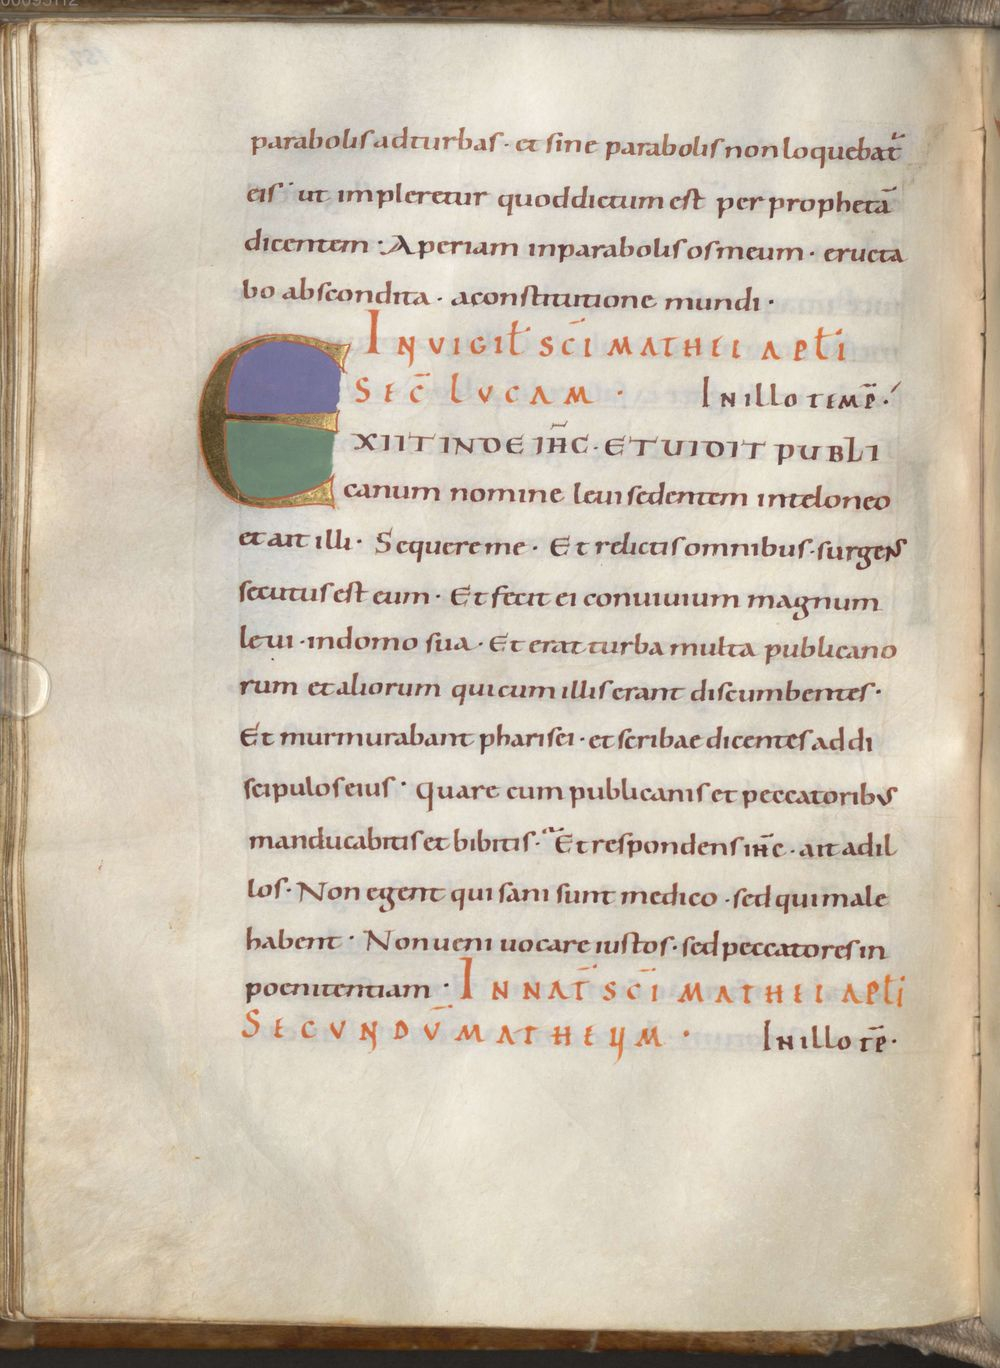 parabolis ad turbas · et sine parabolis non loquebat̃
eis · ut impleretur quod dictum est per prophetā
dicentem · Aperiam in parabolis os meum · eructa
bo abscondita · a constitutione mundi ·
IN VIGIL̃ SC̄I MATHEI APL̄I
SEC̄ LVCAM · IN ILLO TEMP̄ ·
EXIIT INDE IH̄C · ET UIDIT PUBLI
canum nomine leui sedentem in teloneo
et ait illi · Sequere me · Et relictis omnibus · surgens
secutus est eum · Et fecit ei conuiuium magnum
leui · in domo sua · Et erat turba multa publicano
rum et aliorum qui cum illis erant discumbentes ·
Et murmurabant pharisei · et scribae dicentes ad di
scipulos eius · Quare cum publicanis et peccatoribus
manducabitis et bibitis · Et respondens ih̄c · ait ad il
los · Non egent qui sani sunt medico · sed qui male
habent · Non ueni uocare iustos · sed peccatores in
poenitentiam · IN NAT̄ SC̄I MATHEI APL̄I
SECVNDV̄ MATHEUM · IN ILLO TĒ ·